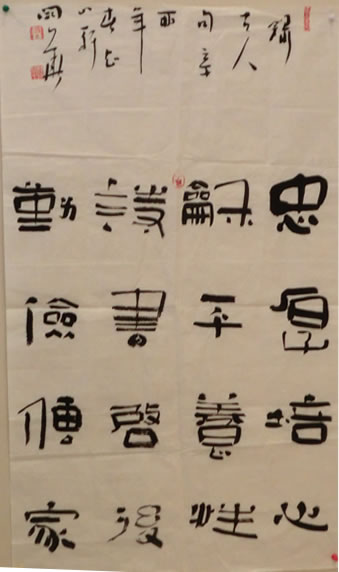 錄
古人
句
年
忠厚培心
龢平養性
詩書啓後
勤儉傳家